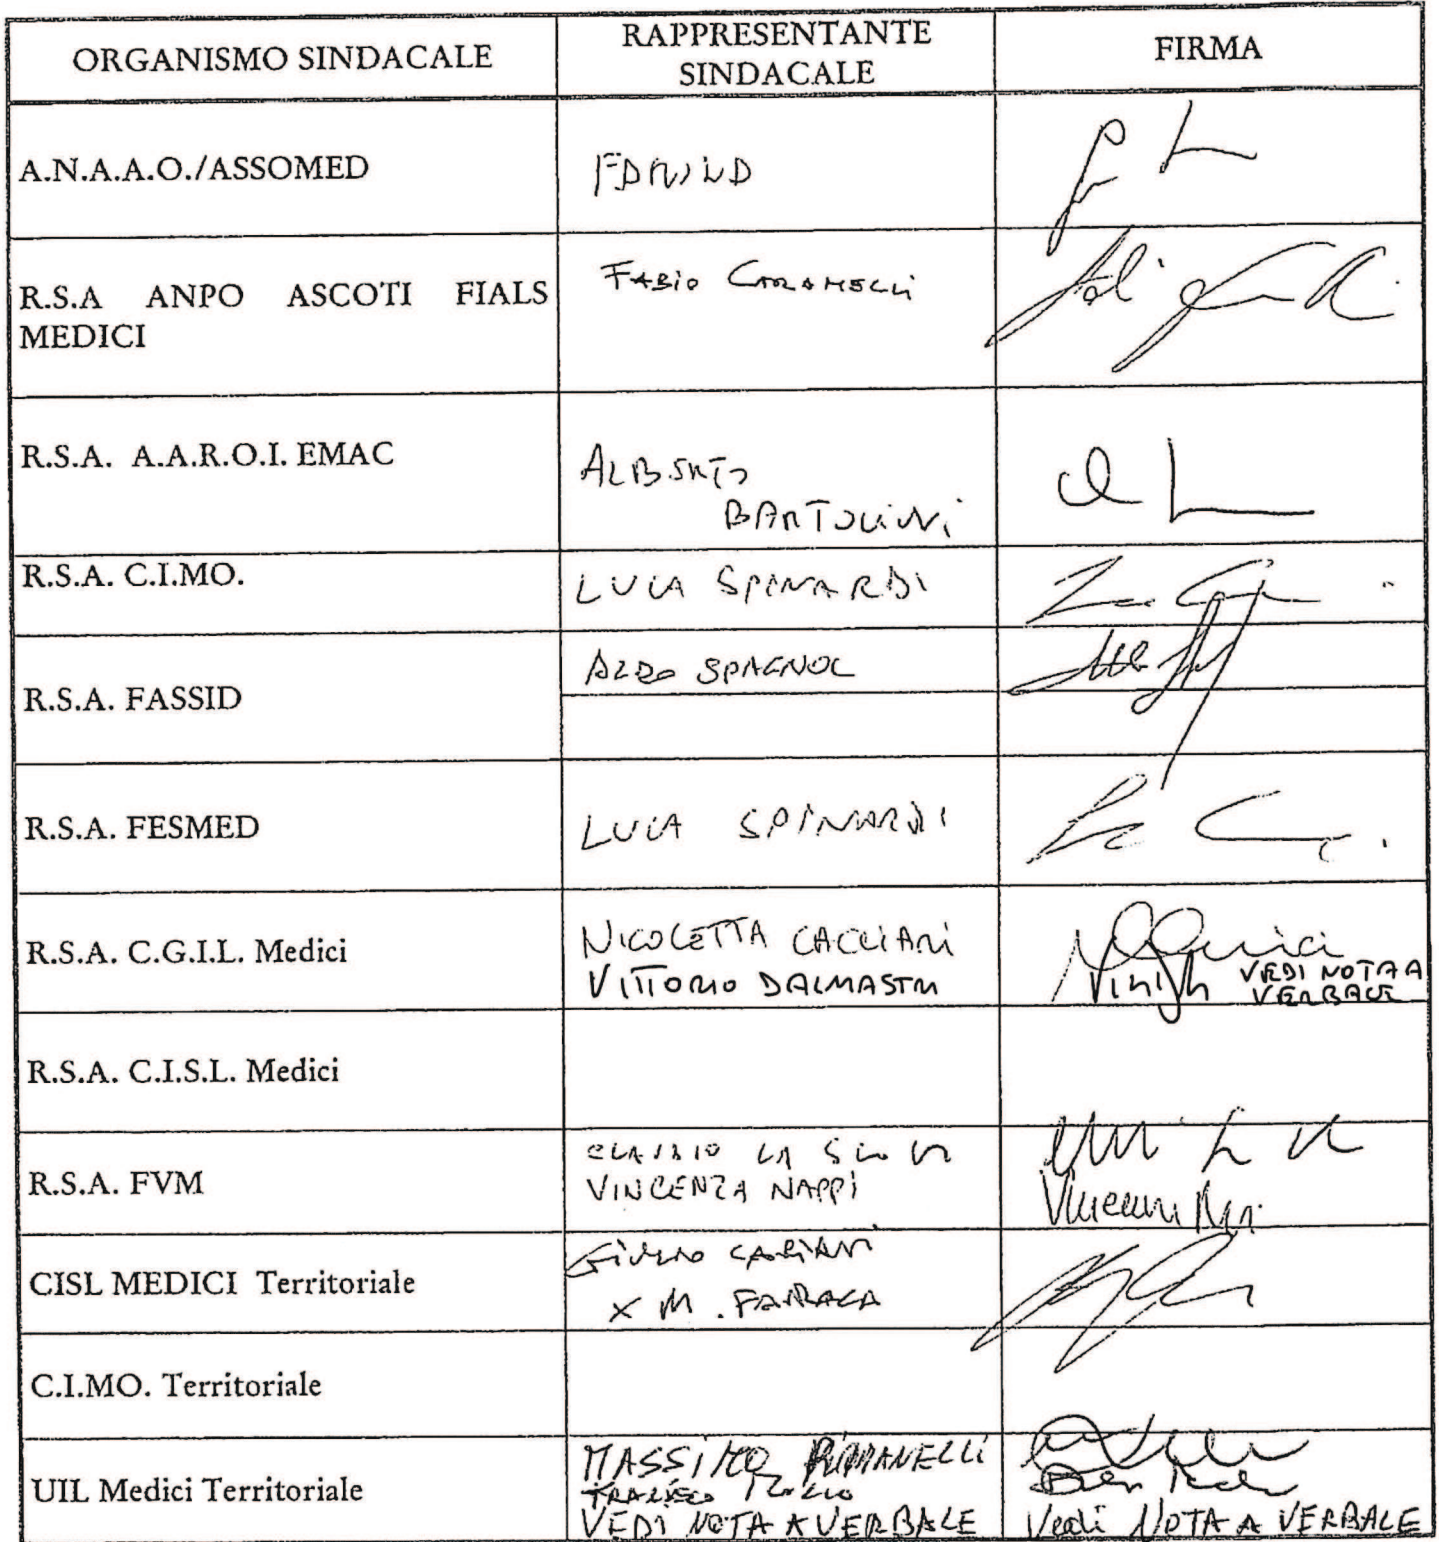 ORGANISMO SINDACALE
RAPPRESENTANTE
SINDACALE
FIRMA
A.N.A.A.O./ASSOMED
R.S.A ANPO ASCOTI FIALS
MEDICI
FABIO CARAMELLI
R.S.A. A.A.R.O.I. EMAC
ALBERTO
BARTOLINI
R.S.A. C.I.MO.
LUCA SPINARDI
R.S.A. FASSID
ALDO SPAGNOL
R.S.A. FESMED
LUCA SPINARDI
R.S.A. C.G.I.L. Medici
NICOLETTA CACCIARI
VITTORIO DALMASTRI
VEDI NOTA A
VERBALE
R.S.A. C.I.S.L. Medici
R.S.A. FVM
VINCENZA NAPPI
CISL MEDICI Territoriale
X M. FARRACA
C.I.MO. Territoriale
UIL Medici Territoriale
MASSIMO
VEDI NOTA A VERBALE
Vedi NOTA A VERBALE